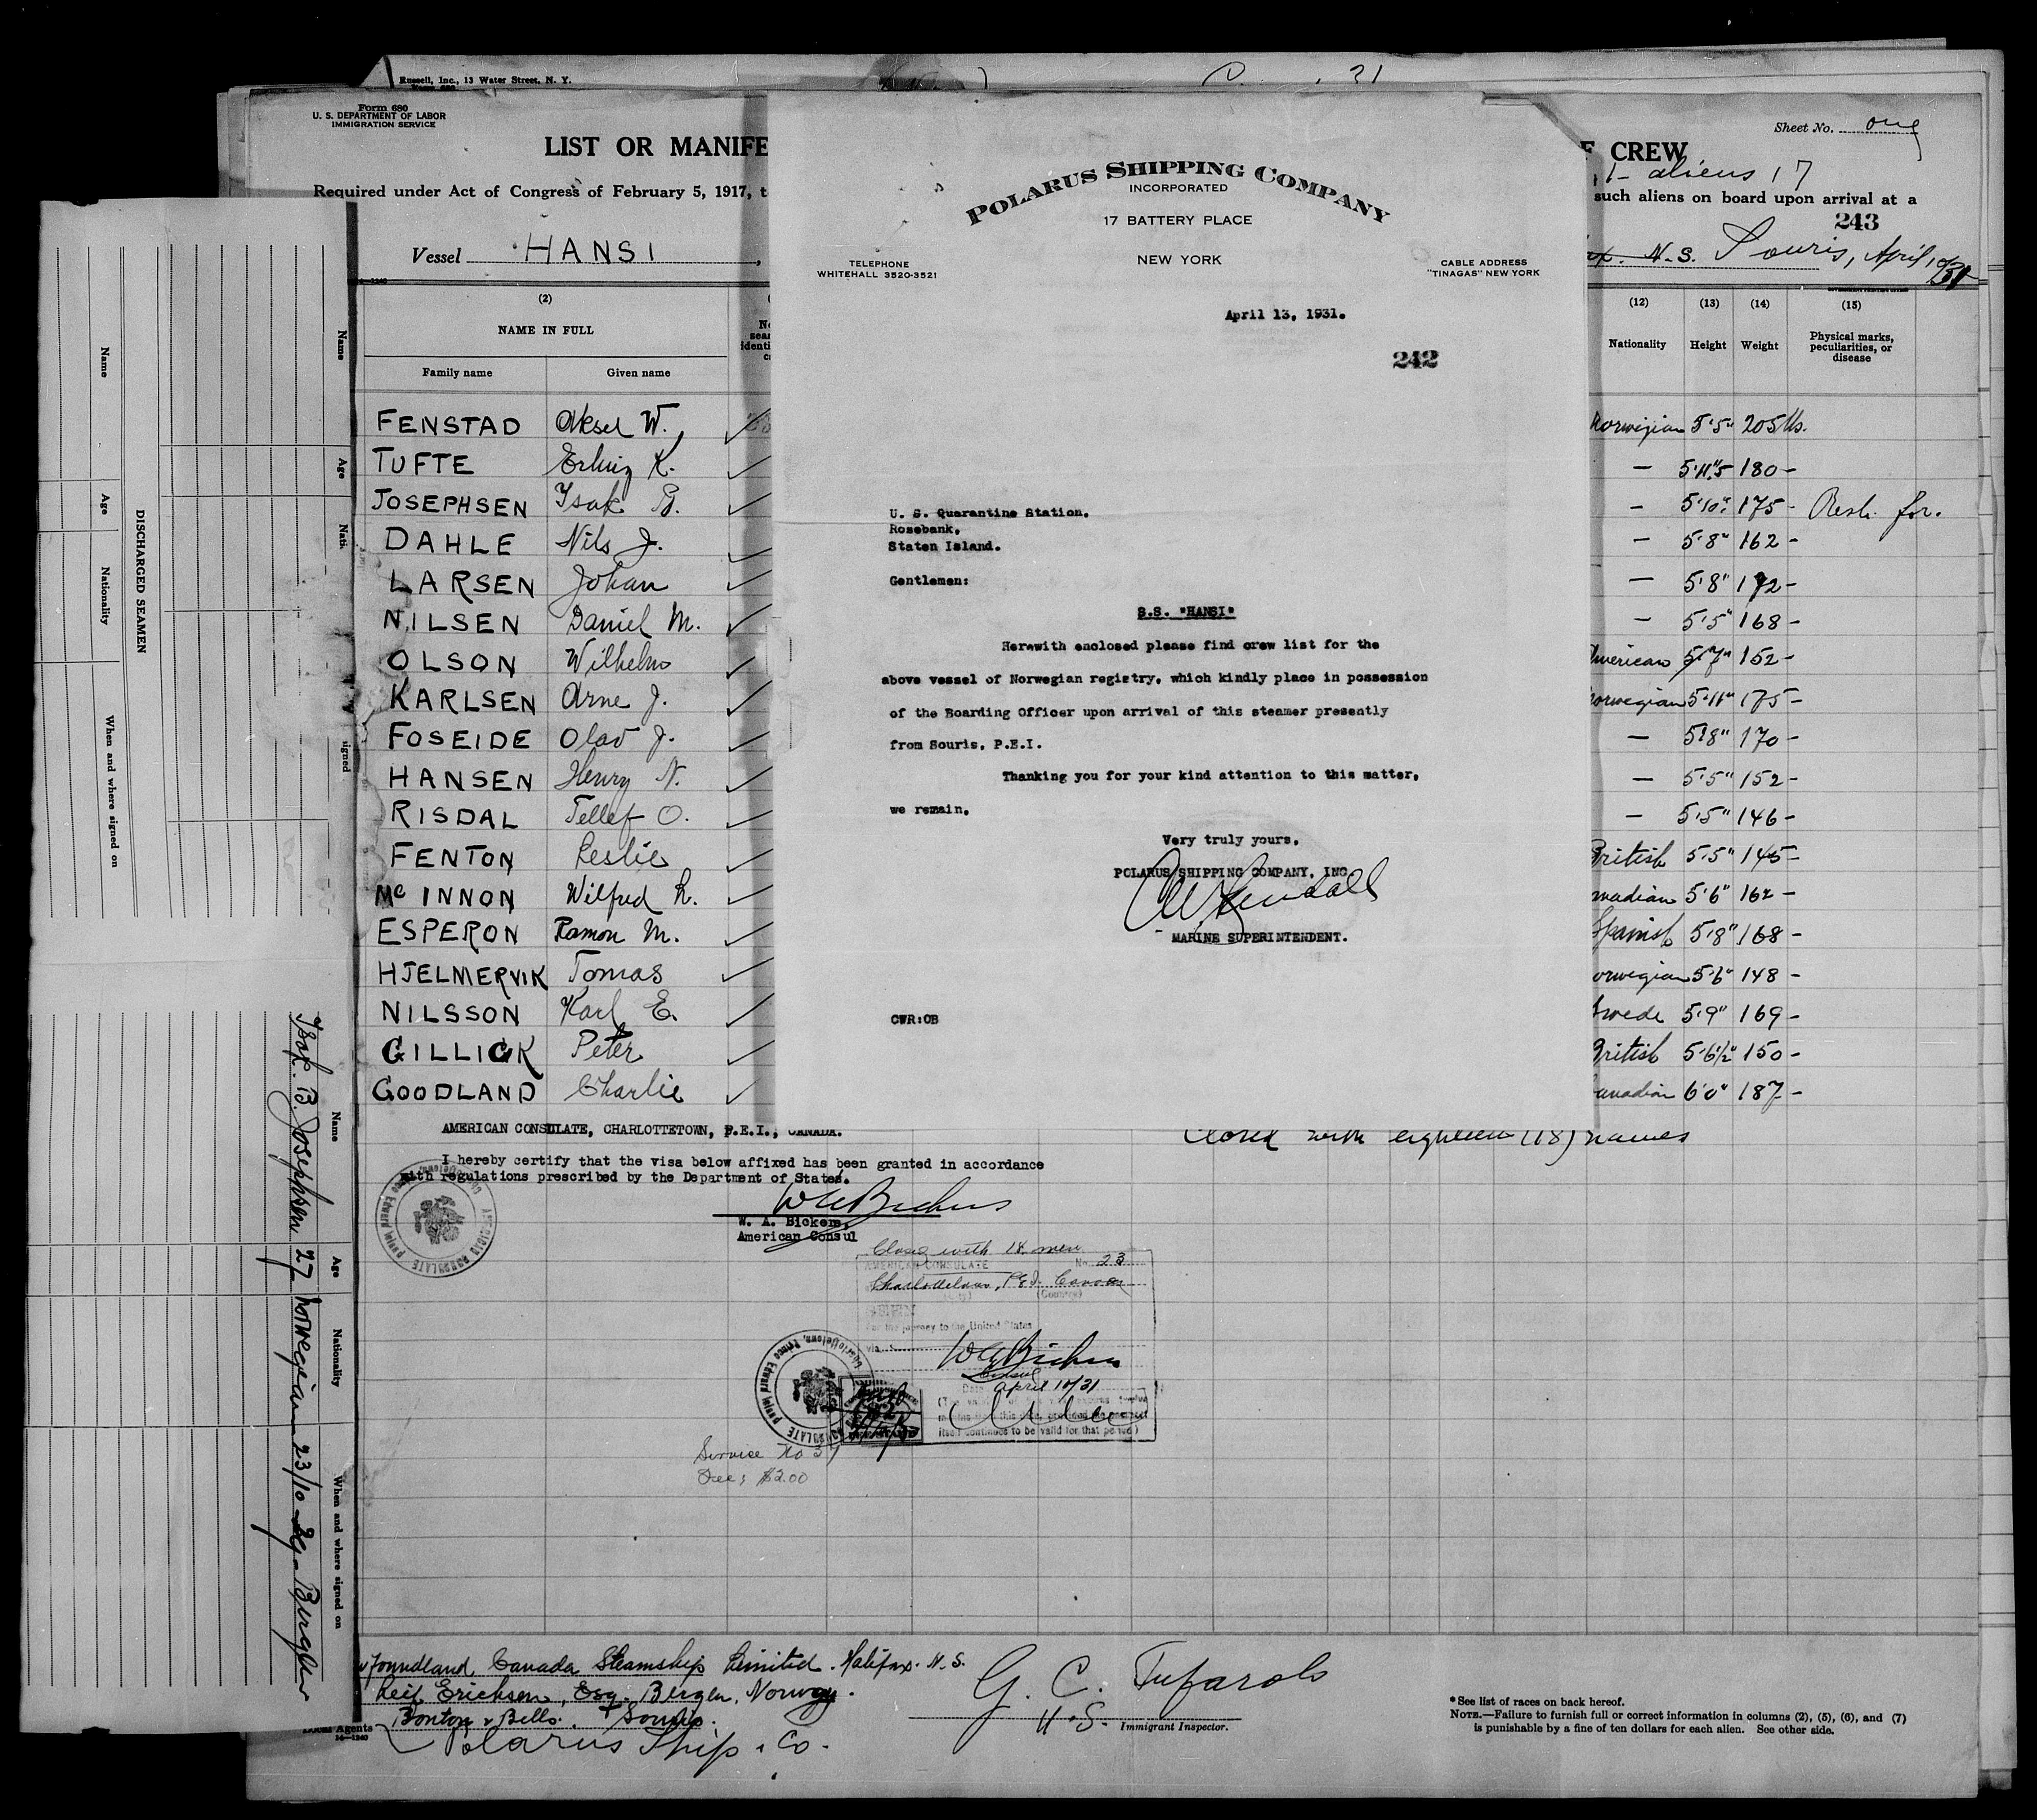 Russell, Inc., 13 Water Street, N. Y.
Form 680
U. S. DEPARTMENT OF LABOR
IMMIGRATION SERVICE
Sheet No. one
LIST OR MANIFE
F CREW
1- aliens 17
Required under Act of Congress of February 5, 1917, t
such aliens on board upon arrival at a
243
Vessel HANSI,
N.S. Souris, April 10/31
(2)
NAME IN FULL
Family name Given name
(12) (13) (14) (15)
Nationality Height Weight Physical marks, peculiarities, or disease
FENSTAD Aksel W. Norwegian 5'5" 205 lbs.
TUFTE Erling K. — 5'11"5 180 -
JOSEPHSEN Isak B. — 5'10" 175 - Resh. for.
DAHLE Nils J. — 5'8" 162 -
LARSEN Johan — 5'8" 172 -
NILSEN Daniel M. — 5'5" 168 -
OLSON Wilhelm American 5'7" 152 -
KARLSEN Arne J. Norwegian 5'11" 175 -
FOSEIDE Olav J. — 5'8" 170 -
HANSEN Henry N. — 5'5" 152 -
RISDAL Tellef O. — 5'5" 146 -
FENTON Leslie British 5'5" 145 -
Mc INNON Wilfred L. nadian 5'6" 162 -
ESPERON Ramon M. Spanish 5'8" 168 -
HJELMERVIK Tomas orwegian 5'6" 148 -
NILSSON Karl E. Swede 5'9" 169 -
GILLICK Peter British 5'6½" 150 -
GOODLAND Charlie anadian 6'0" 187 -
POLARUS SHIPPING COMPANY
INCORPORATED
17 BATTERY PLACE
NEW YORK
TELEPHONE
WHITEHALL 3520-3521
CABLE ADDRESS
"TINAGAS" NEW YORK
April 13, 1931.
242
U. S. Quarantine Station,
Rosebank,
Staten Island.
Gentlemen:
S.S. "HANSI"
Herewith enclosed please find crew list for the
above vessel of Norwegian registry, which kindly place in possession
of the Boarding Officer upon arrival of this steamer presently
from Souris, P.E.I.
Thanking you for your kind attention to this matter,
we remain,
Very truly yours,
POLARUS SHIPPING COMPANY, INC.
MARINE SUPERINTENDENT.
CWR:OB
AMERICAN CONSULATE, CHARLOTTETOWN, P.E.I., CANADA.
Closed with eighteen (18) names
I hereby certify that the visa below affixed has been granted in accordance
with regulations prescribed by the Department of State.
W A Bickers
W. A. Bickers,
American Consul
Closed with 18 men
AMERICAN CONSULATE No. 23
Charlottetown, P.E.I. Canada
(Country)
For the journey to the United States
via
W A Bickers
Consul
Date April 10/31
itself continues to be valid for that period)
Service No 37
Fee; $2.00
foundland Canada Steamship Limited. Halifax. N.S.
Leif Erichsen, Esq. Bergen, Norway.
Polarus Ship. Co.
G. C. Tufarolo
U.S. Immigrant Inspector.
* See list of races on back hereof.
NOTE.—Failure to furnish full or correct information in columns (2), (5), (6), and (7)
is punishable by a fine of ten dollars for each alien. See other side.
DISCHARGED SEAMEN
Name Age Nationality When and where signed on
Name Age Nati. signed
Name Age Nationality When and where signed on
Isak B. Josephsen 27 Norwegian 23/10-29 Bergen